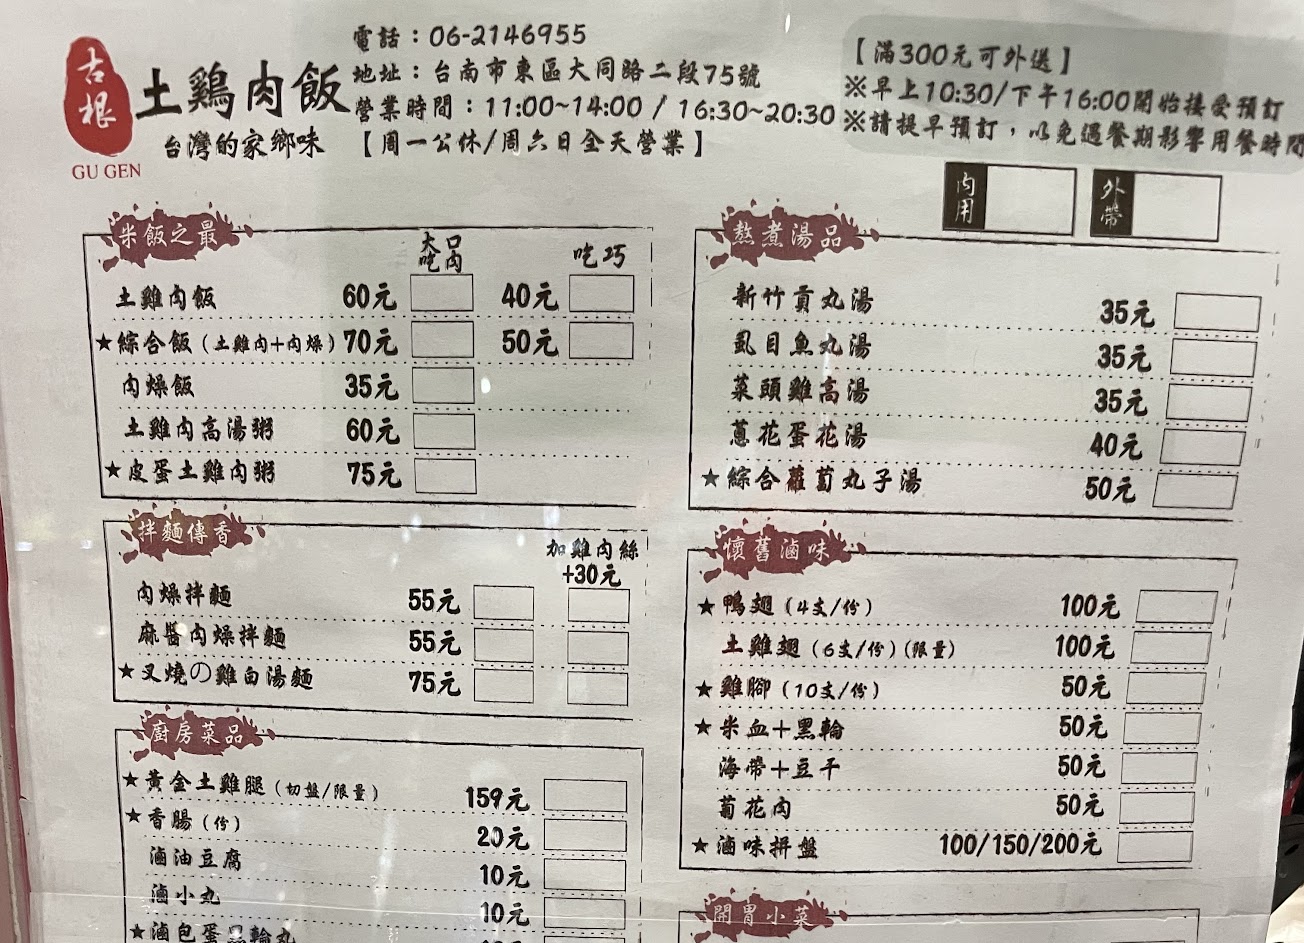 古根
GU GEN
土鷄肉飯
台灣的家鄉味
電話：06-2146955
地址：台南市東區大同路二段75號
營業時間：11:00~14:00 / 16:30~20:30
【周一公休/周六日全天營業】
【滿300元可外送】
※早上10:30/下午16:00開始接受預訂
※請提早預訂，以免過餐期影響用餐時間
內用
外帶
米飯之最
大口吃肉 吃巧
土雞肉飯 60元 40元
★綜合飯(土雞肉+肉燥) 70元 50元
肉燥飯 35元
土雞肉高湯粥 60元
★皮蛋土雞肉粥 75元
拌麵傳香
加雞肉絲
+30元
肉燥拌麵 55元
麻醬肉燥拌麵 55元
★叉燒の雞白湯麵 75元
廚房菜品
★黃金土雞腿(切盤/限量) 159元
★香腸(份) 20元
滷油豆腐 10元
滷小丸 10元
熬煮湯品
新竹貢丸湯 35元
虱目魚丸湯 35元
菜頭雞高湯 35元
蔥花蛋花湯 40元
★綜合蘿蔔丸子湯 50元
懷舊滷味
★鴨翅(4支/份) 100元
土雞翅(6支/份)(限量) 100元
★雞腳(10支/份) 50元
★米血+黑輪 50元
海帶+豆干 50元
菊花肉 50元
★滷味拼盤 100/150/200元
開胃小菜